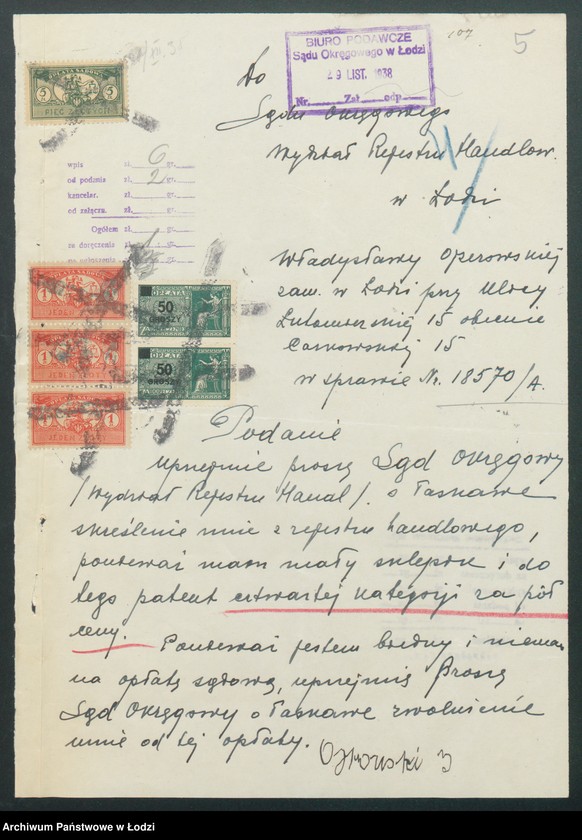 107
5
BIURO PODAWCZE
Sądu Okręgowego w Łodzi
29 LIST. 1938
Nr. Zał. odp.
OPŁATA SĄDOWA
5 5
PIĘĆ ZŁOTYCH
Do
Sądu Okręgowego
Wydział Rejestru Handlow.
w Łodzi
wpis zł. 6 gr.
od podania zł. 2 gr.
kancelar. zł. gr.
od załącz. zł. gr.
Ogółem zł. gr.
za doręczenia zł. gr.
za ogłoszenie
1 1
JEDEN ZŁOTY
1 1
1 1
JEDEN ZŁOTY
50
GROSZY
OPŁATA
50
GROSZY
Władysławy Operowskiej
zam. w Łodzi przy ulicy
Lutomierskiej 15 obecnie
15
w sprawie Nr. 18570/A.
Podanie
Uprzejmie proszę Sąd Okręgowy
/Wydział Rejestru Handl/. o łaskawe
skreślenie mnie z rejestru handlowego,
ponieważ mam mały sklepik i do
tego patent czwartej kategorji za pół
ceny. Ponieważ jestem biedny i niemam
na opłatę sądową, uprzejmię Proszę
Sąd Okręgowy o łaskawe zwolnienie
mnie od tej opłaty.
Archiwum Państwowe w Łodzi